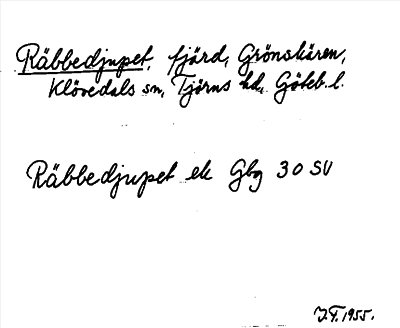 Räbbedjupet, fjärd, Grönskären,
Klövedals sn, Tjörns hd, Göteb. l.
Räbbedjupet ek Gbg 30 SV
J.F. 1955.